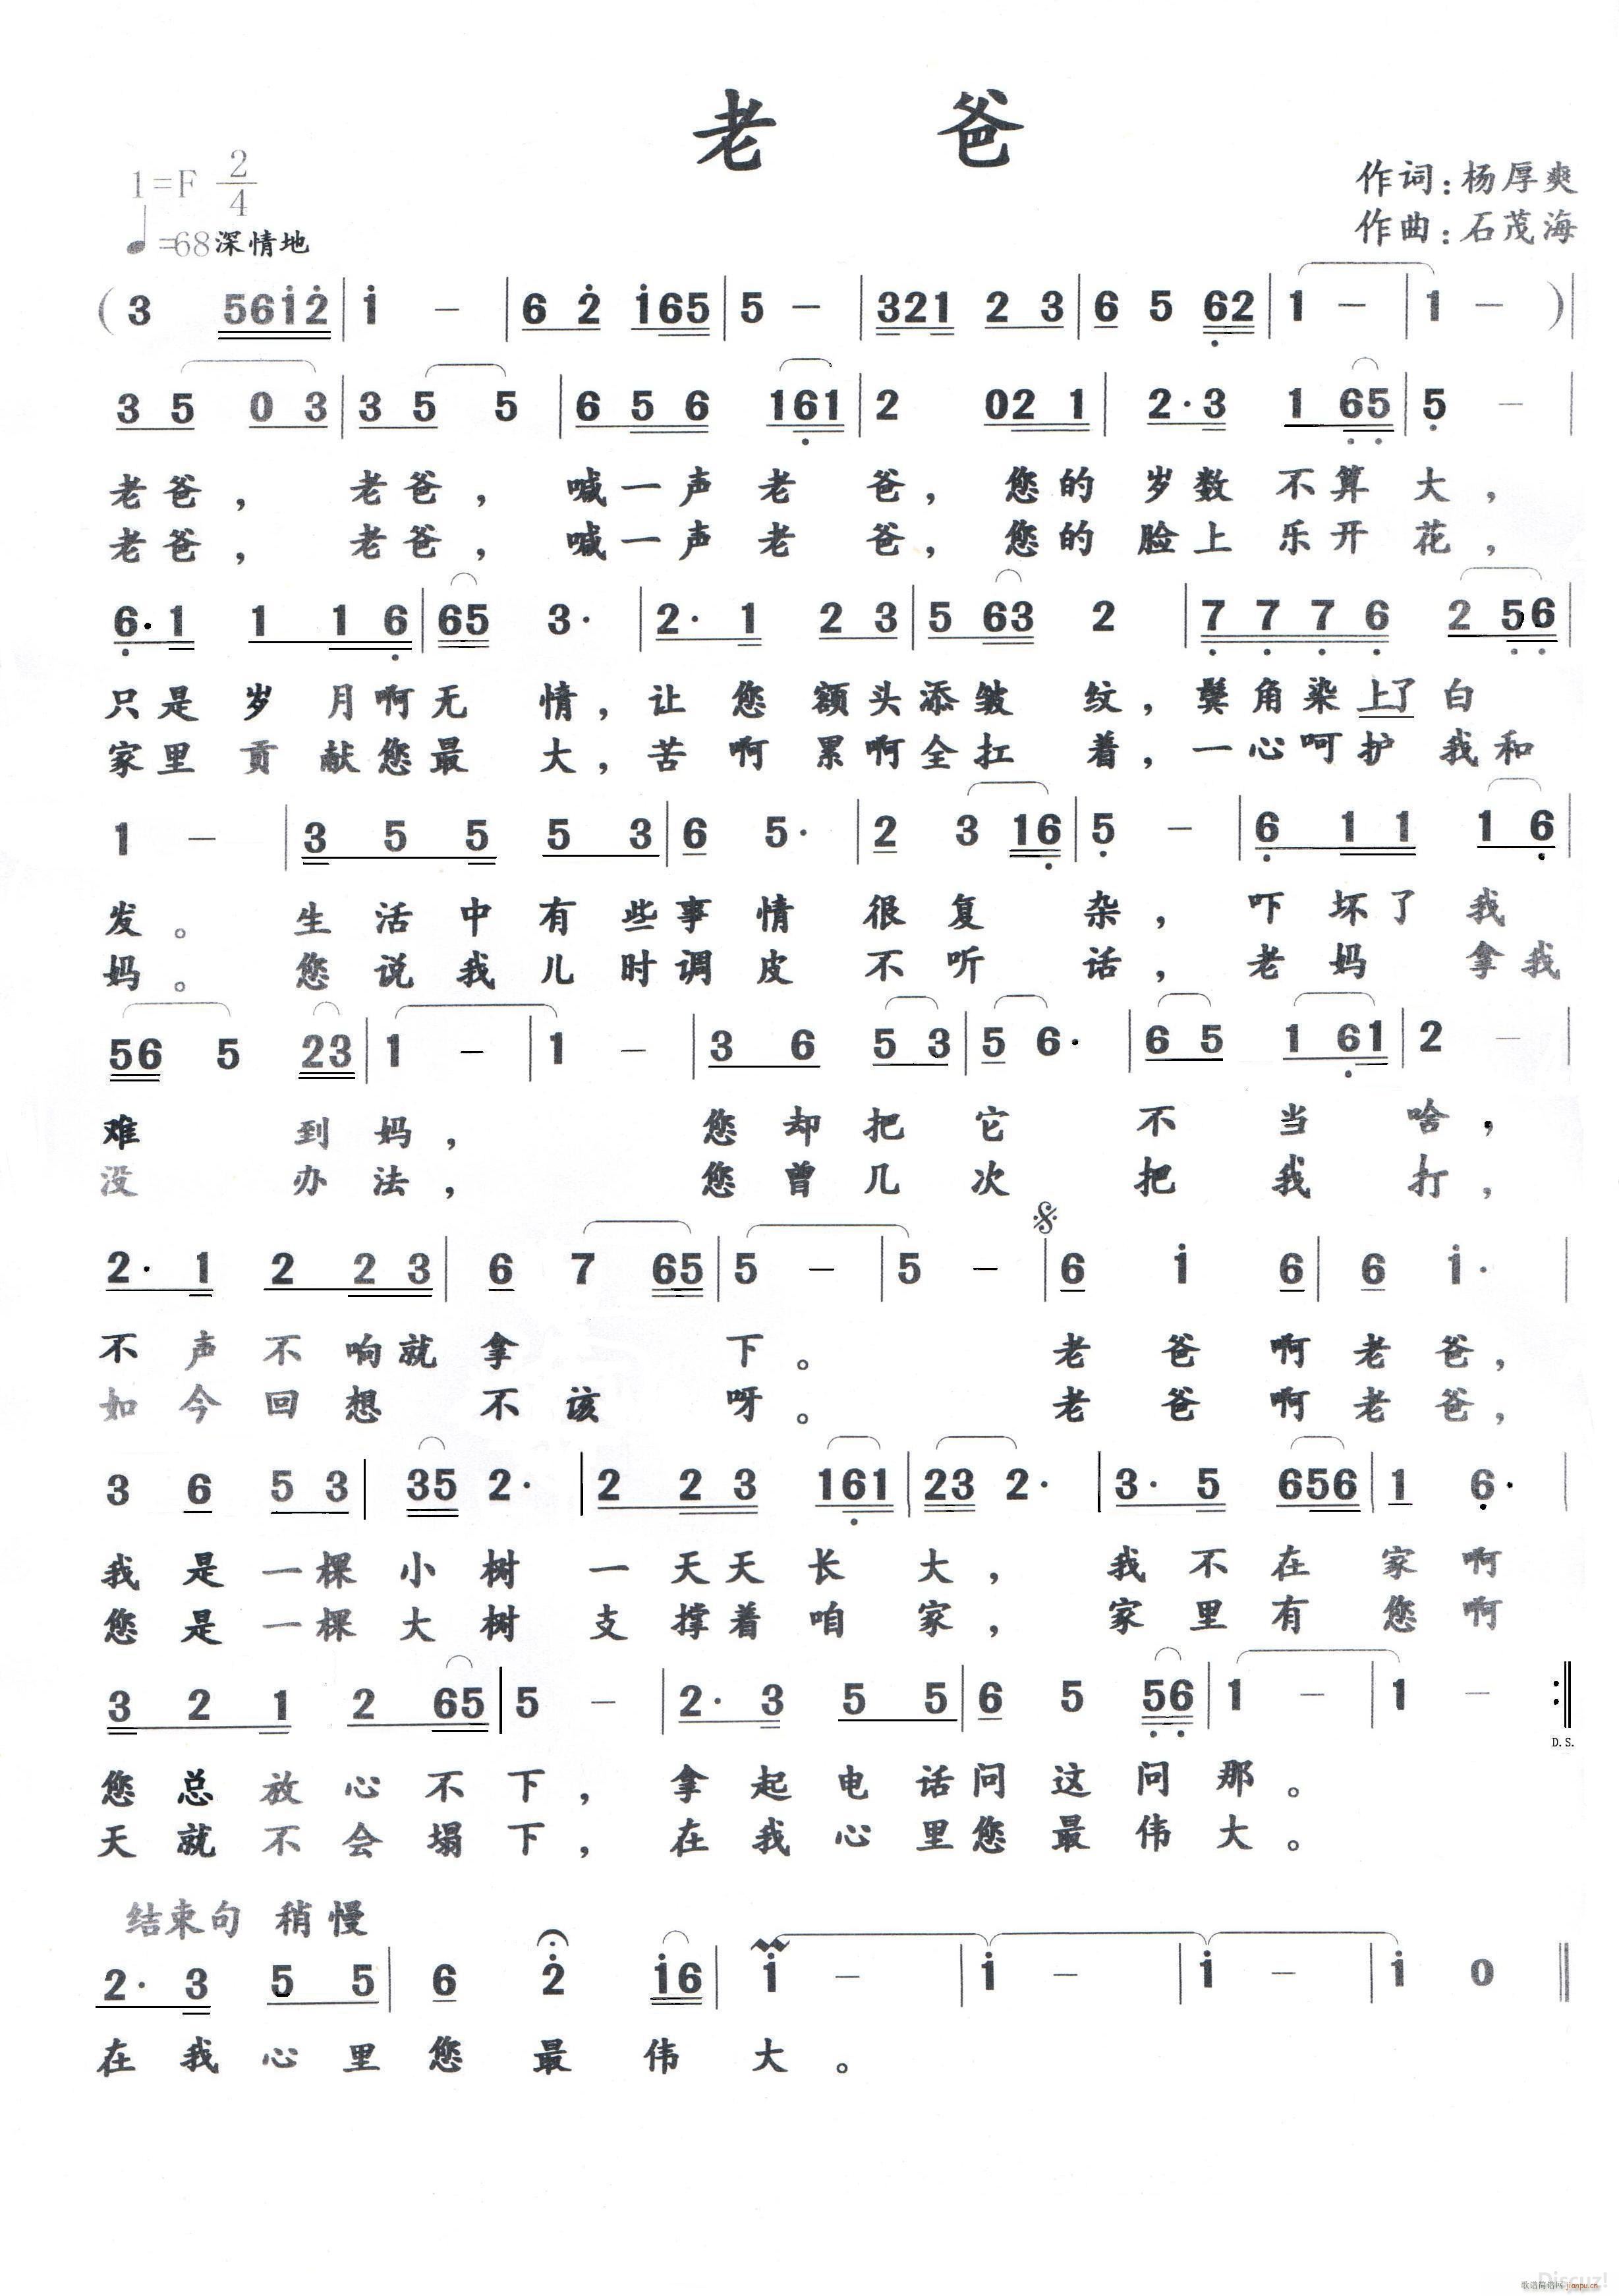 老 爸
1=F 2/4
作词：杨厚爽
♩=68深情地
作曲：石茂海
( 3 561̇2̇ | 1̇ － | 6 2̇ 1̇65 | 5 － | 321 2 3 | 6 5 6̣2 | 1 － | 1 － )|
3 5 0 3 | 3 5 5 | 6 5 6 16̣1 | 2 021 | 2·3 1 6̣5̣ | 5̣ － |
老爸， 老爸， 喊一声老 爸， 您的 岁数 不算大，
老爸， 老爸， 喊一声老 爸， 您的 脸上 乐开花，
6̣·1 1 1 6̣ | 65 3· | 2·1 2 3 | 5 63 2 | 7̣ 7̣ 7̣ 6̣ 2 5̣6̣ |
只是 岁 月啊无 情，让 您 额头添皱 纹，鬓角染上了白
家里 贡 献您最 大，苦 啊 累啊全扛 着，一心呵护 我和
1 － | 3 5 5 5 3 | 6 5· | 2 3 16̣ | 5̣ － | 6̣ 1 1 1 6̣ |
发。 生 活 中 有 些事 情 很 复 杂， 吓 坏了 我
妈。 您 说 我 儿 时调 皮 不 听 话， 老 妈 拿我
56 5 23 | 1 － | 1 － | 3 6 5 3 | 5 6· | 6 5 1 6̣1 | 2 － |
难 到 妈， 您 却 把 它 不 当 啥，
没 办 法， 您 曾 几 次 把 我 打，
2·1 2 2 3 | 6 7 65 | 5 － | 5 － | 6 1̇ 6 | 6 1̇· |
不 声 不 响就 拿 下。 老 爸 啊 老 爸，
如 今 回 想 不 该 呀。 老 爸 啊 老 爸，
3 6 5 3 | 35 2· | 2 2 3 16̣1 | 23 2· | 3·5 656 | 1 6̣· |
我 是 一棵 小 树 一 天天 长 大， 我 不 在 家 啊
您 是 一棵 大 树 支 撑着 咱 家， 家 里 有 您 啊
3 2 1 2 65 | 5 － | 2·3 5 5 | 6 5 5̣6̣ | 1 － | 1 － :‖
D.S.
您 总 放 心 不 下， 拿 起 电 话问 这 问 那。
天 就 不 会 塌 下， 在 我 心 里您 最 伟 大。
结束句 稍慢
2·3 5 5 | 6 2̇ 1̇6 | 1̇ － | 1̇ － | 1̇ － | 1̇ 0 ‖
在 我 心 里 您 最 伟 大。
Discuz!
歌谱简谱网 jianpu.cn